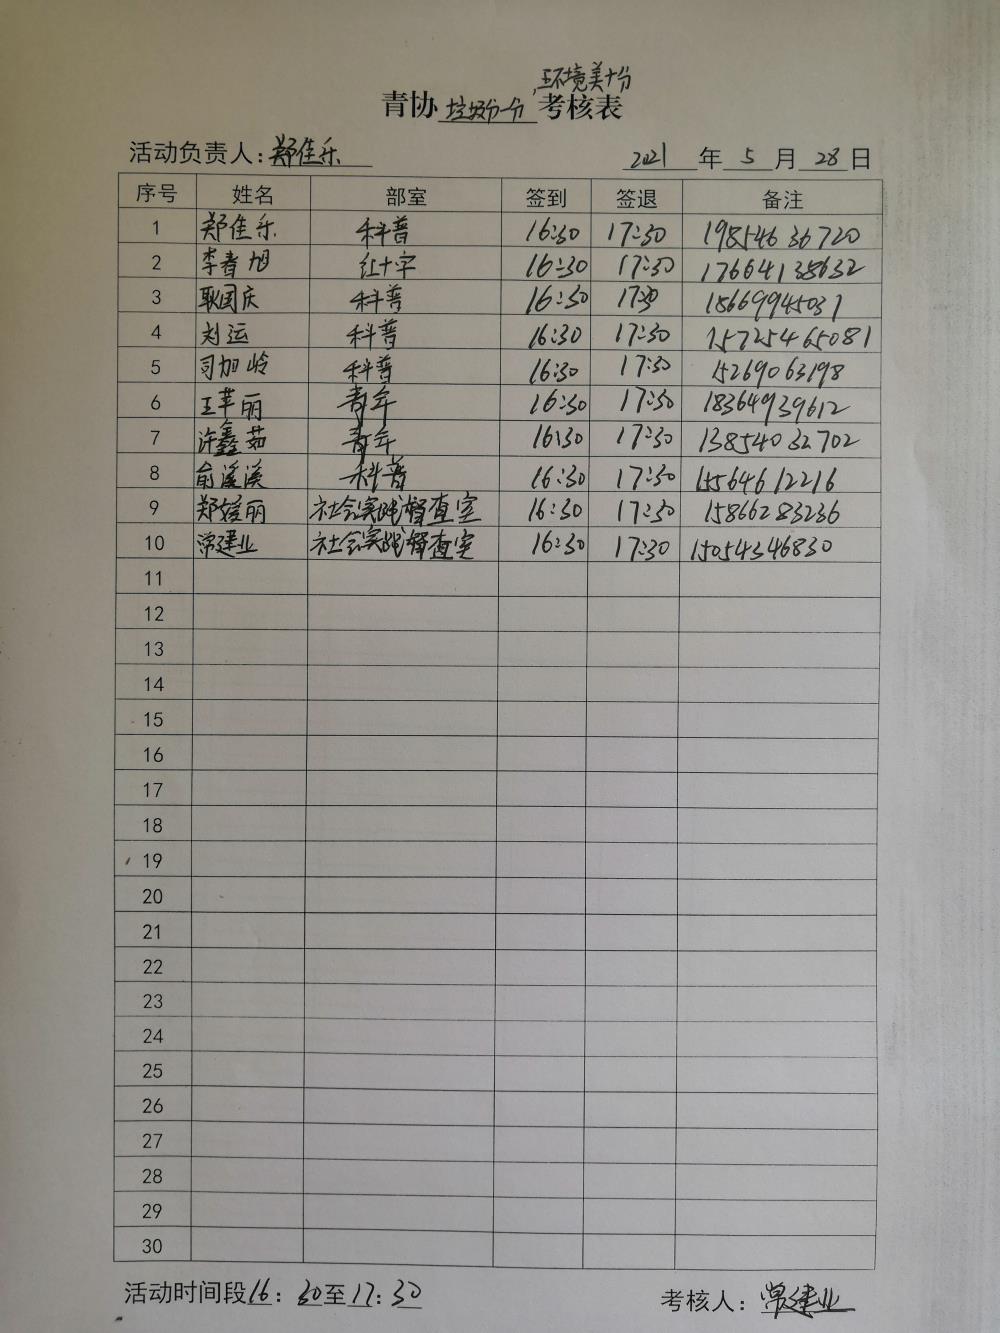 环境美十分
青协垃圾分一分,考核表
活动负责人:郑佳乐 2021年5月28日
序号 姓名 部室 签到 签退 备注
1 郑佳乐 科普 16:30 17:30 19854636720
2 李春旭 红十字 16:30 17:30 17664138632
3 耿国庆 科普 16:30 17:30 18669945031
4 刘运 科普 16:30 17:30 15725465081
5 司加岭 科普 16:30 17:30 15269063198
6 王苹丽 青年 16:30 17:30 18364939612
7 许鑫茹 青年 16:30 17:30 13854032702
8 俞溪溪 科普 16:30 17:30 15564612216
9 郑媛丽 社会实践督查室 16:30 17:30 15866283236
10 常建业 社会实践督查室 16:30 17:30 15054346830
11
12
13
14
15
16
17
18
19
20
21
22
23
24
25
26
27
28
29
30
活动时间段16:30至17:30 考核人:常建业